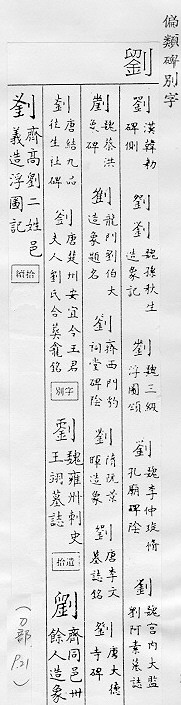 偏類碑別字
劉
劉 漢韓勑碑側 劉 劉 魏孫秋生造象記 劉 魏三級浮圖頌 劉 魏李仲璇脩孔廟碑陰 劉 魏宮內大監劉阿素墓誌
劉 魏蔡洪象碑 劉 龍門劉伯大造象題名 劉 齊西門豹祠堂碑陰 劉 隋阮景暉造象 劉 唐李文墓誌銘 劉 唐大德寺碑
劉 唐結九品往生社碑 劉 唐楚州安宜令王君夫人劉氏合葬龕銘 別字 劉 魏雍州刺史王翊墓誌 拾遺 劉 齊同邑卅餘人造象
劉 齊高劉二姓邑義造浮圖記 續拾
(刀部 P.21)